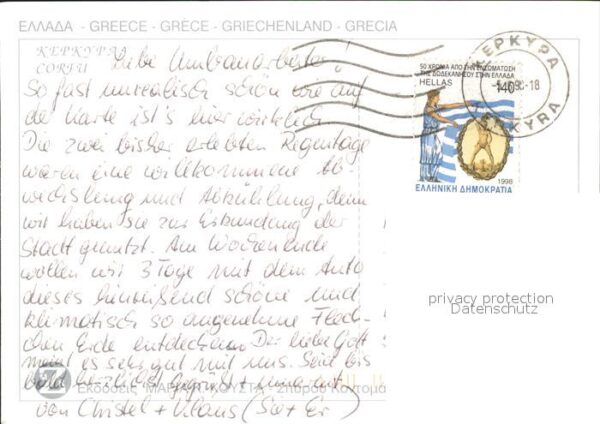 ΕΛΛΑΔΑ - GREECE - GRÈCE - GRIECHENLAND - GRECIA
ΚΕΡΚΥΡΑ
CORFU
Liebe Umbauarbeiter!
So fast unrealistisch schön wie auf
de Karte ist's hier wirklich
Die zwei bisher erlebten Regentage
waren eine willkommene Ab-
wechslung und Abkühlung, denn
wir haben sie zur Erkundung der
Stadt genutzt. Am Wochenende
wollen wir 3 Tage mit dem Auto
dieses hinreißend schöne und
klimatisch so angenehme Fleck-
chen Erde entdecken. Der liebe Gott
meint es sehr gut mit uns. Seid bis
bald herzlichst gegrüßt + umarmt
von Christel + Klaus (Sie + Er)
Εκδόσεις ΜΑΡΙΑ ΚΟΥΣΤΑ - Σπύρου ΚονTομα
50 ΧΡΟΝΙΑ ΑΠΟ ΤΗΝ ΕΝΣΩΜΑΤΩΣΗ
ΤΗΣ ΔΩΔΕΚΑΝΗΣΟΥ ΣΤΗΝ ΕΛΛΑΔΑ
HELLAS 140
1998
ΕΛΛΗΝΙΚΗ ΔΗΜΟΚΡΑΤΙΑ
ΚΕΡΚΥΡΑ
98-18
KYRA
privacy protection
Datenschutz